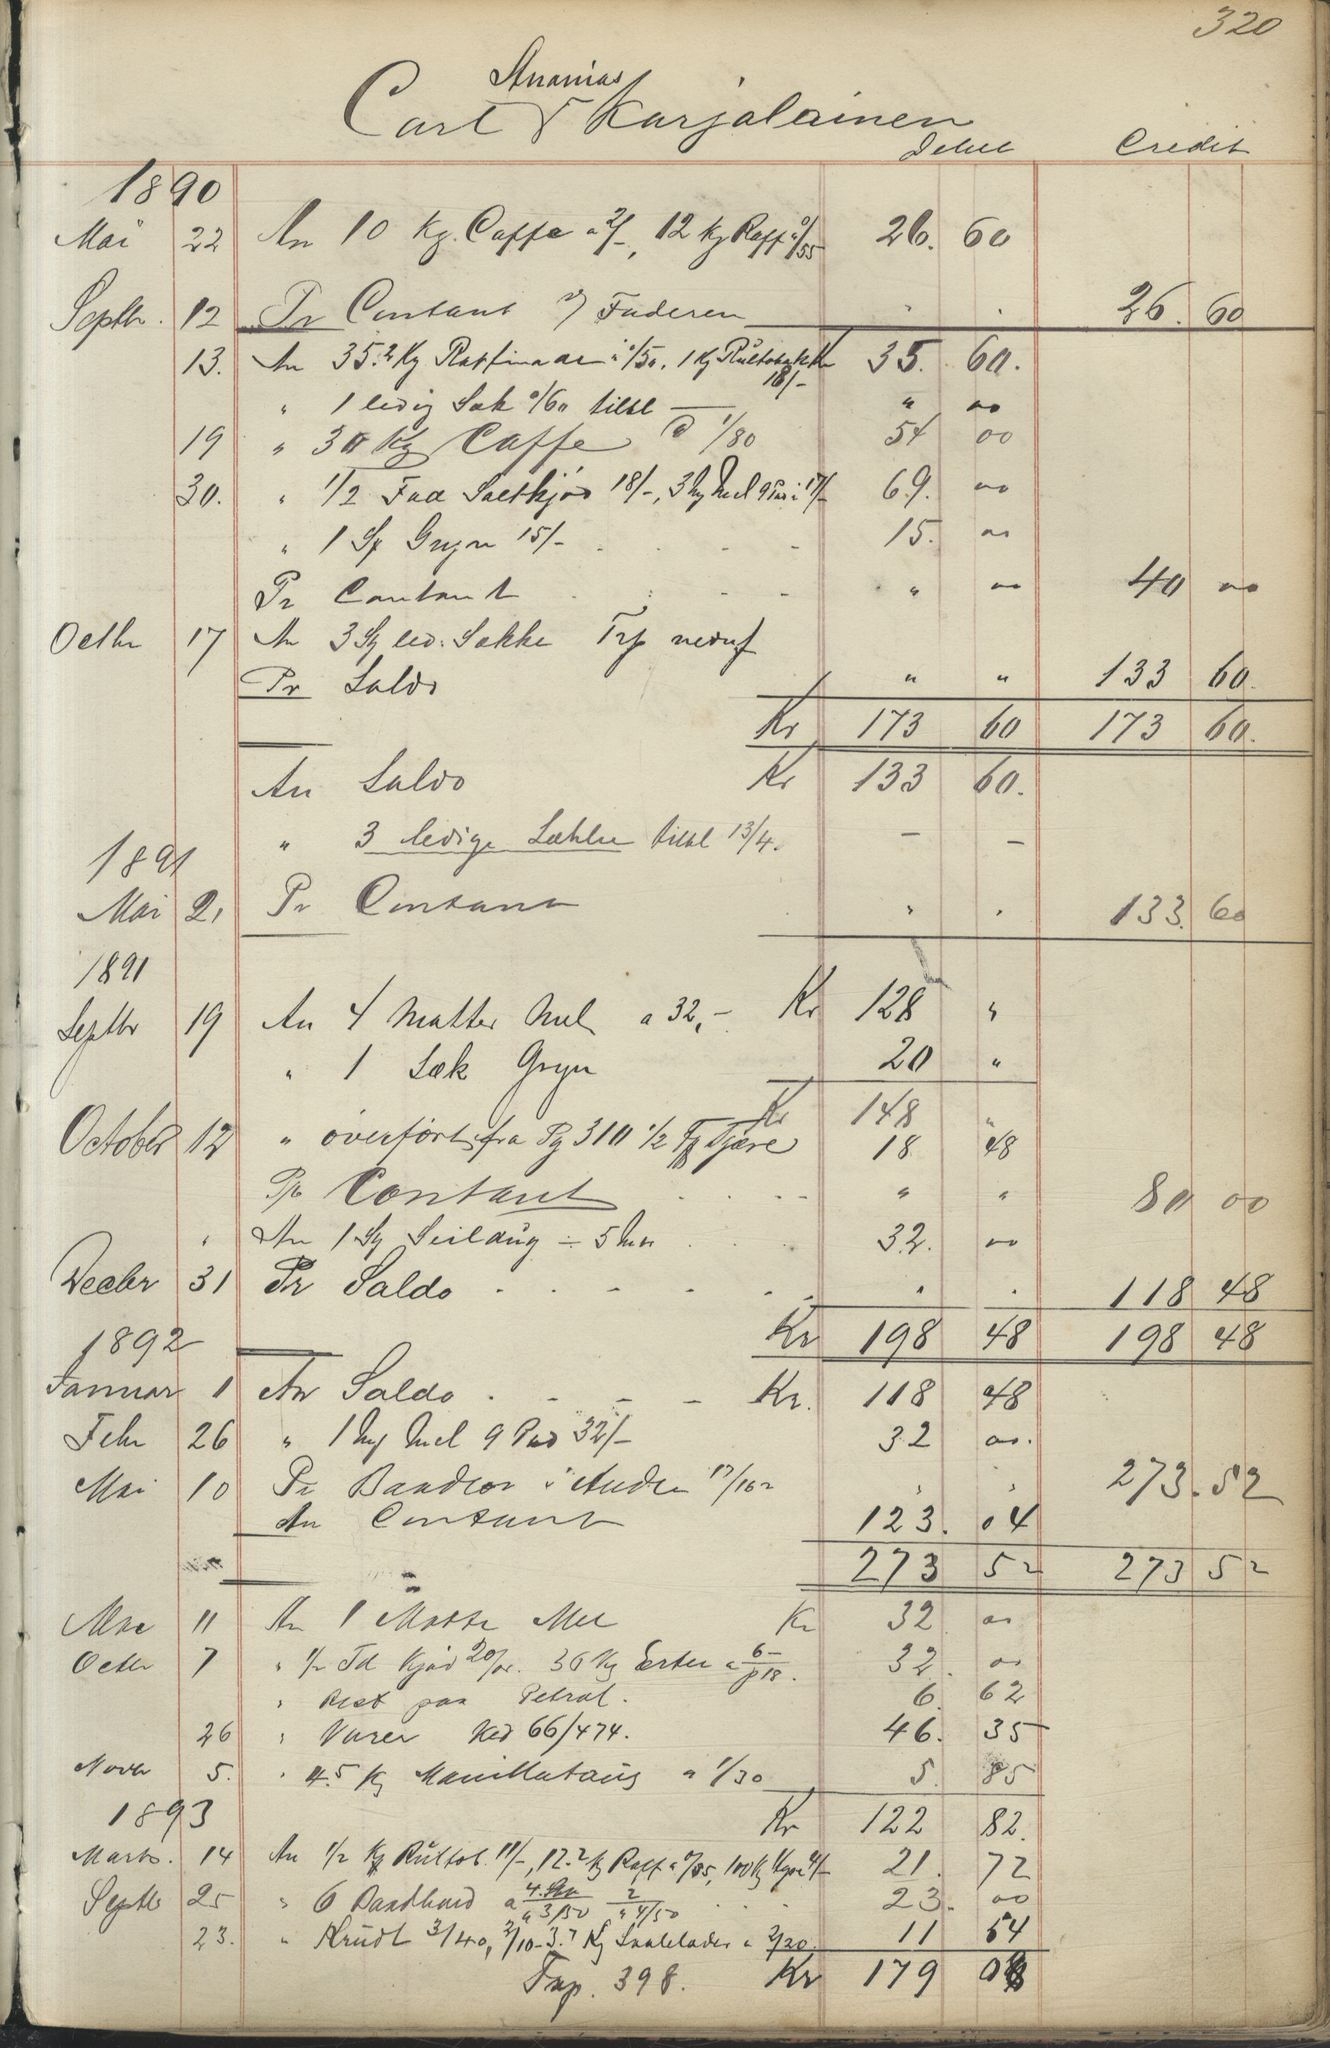 320
Ananias
Carl Karjalainen
Debet Credit
1890
Mai 22 An 10 Kg. Caffe a 2/-, 12 Kg Raff a 0/55 26. 60
Septbr. 12 Pr Contant v/ Faderen " . 26. 60
13. An 35.2 Kg Raffinade a 0/50, 1 Kg Rultobakk 35. 60.
18/-
" 1 ledig Sæk 0/60 tilbl — " 00
19 " 30 Kg Caffe @ 1/80 54 00
30. " 1/2 Fad Saltkjød 18/-, 3 Mel 9 Pud a 17/- 69. 00
" 1 Sk Gryn 15/- . . . - 15. 00
Pr Contant . . . - " 00 40 00
Octbr 17 An 3 led. Sække
Pr Saldo " " 133 60.
Kr 173 60 173 60.
An Saldo Kr 133 60.
" 3 ledige Sække tilbl 13/4. — —
1891
Mai 21 Pr Contant " . 133. 60
1891
Septbr 19 An 4 Matter Mel a 32,- Kr 128 "
" 1 Sæk Gryn 20 "
Kr 148 "
October 12 " overført fra Pg 310 1/2 Tjære 18 48
Pr Contant . . . - " " 80 00
" An 1 Seildug ÷ 5 . . 32. 00
Decbr 31 Pr Saldo . . . . . . . . 118 48
1892 Kr 198 48 198 48
Januar 1 An Saldo . . - - Kr. 118 48
Febr 26 " 1 Mel 9 Pud 32/- 32 00.
Mai 10 Pr 273. 52
An Contant 123. 04
273 52 273 52
Mai 11 An 1 Matte Mel Kr 32 00
Octbr 7 " 1/2 Td Kjød 20/00. 36 Kg Erter a 6-/p 18. 32. 00
" Rest paa Petrol. 6. 62
26 " Varer Kd 66/474. 46. 35
Novbr 5. " 4.5 Kg Manillataug a 1/30 5. 85
1893 Kr 122 82.
Marts. 14 An 1/2 Kg Rultob. 11/-, 12.2 Kg Raff a 0/85, 100 Kg 21. 72
Septb 25 " 6 a 4 a 3/50 2 a 4/50 . . . 23. 00
23. " Krudt 3/40, 2/10 - 3.7 Kg Saalelæder a 2/20. 11 54
Trp. 398. Kr 179 08